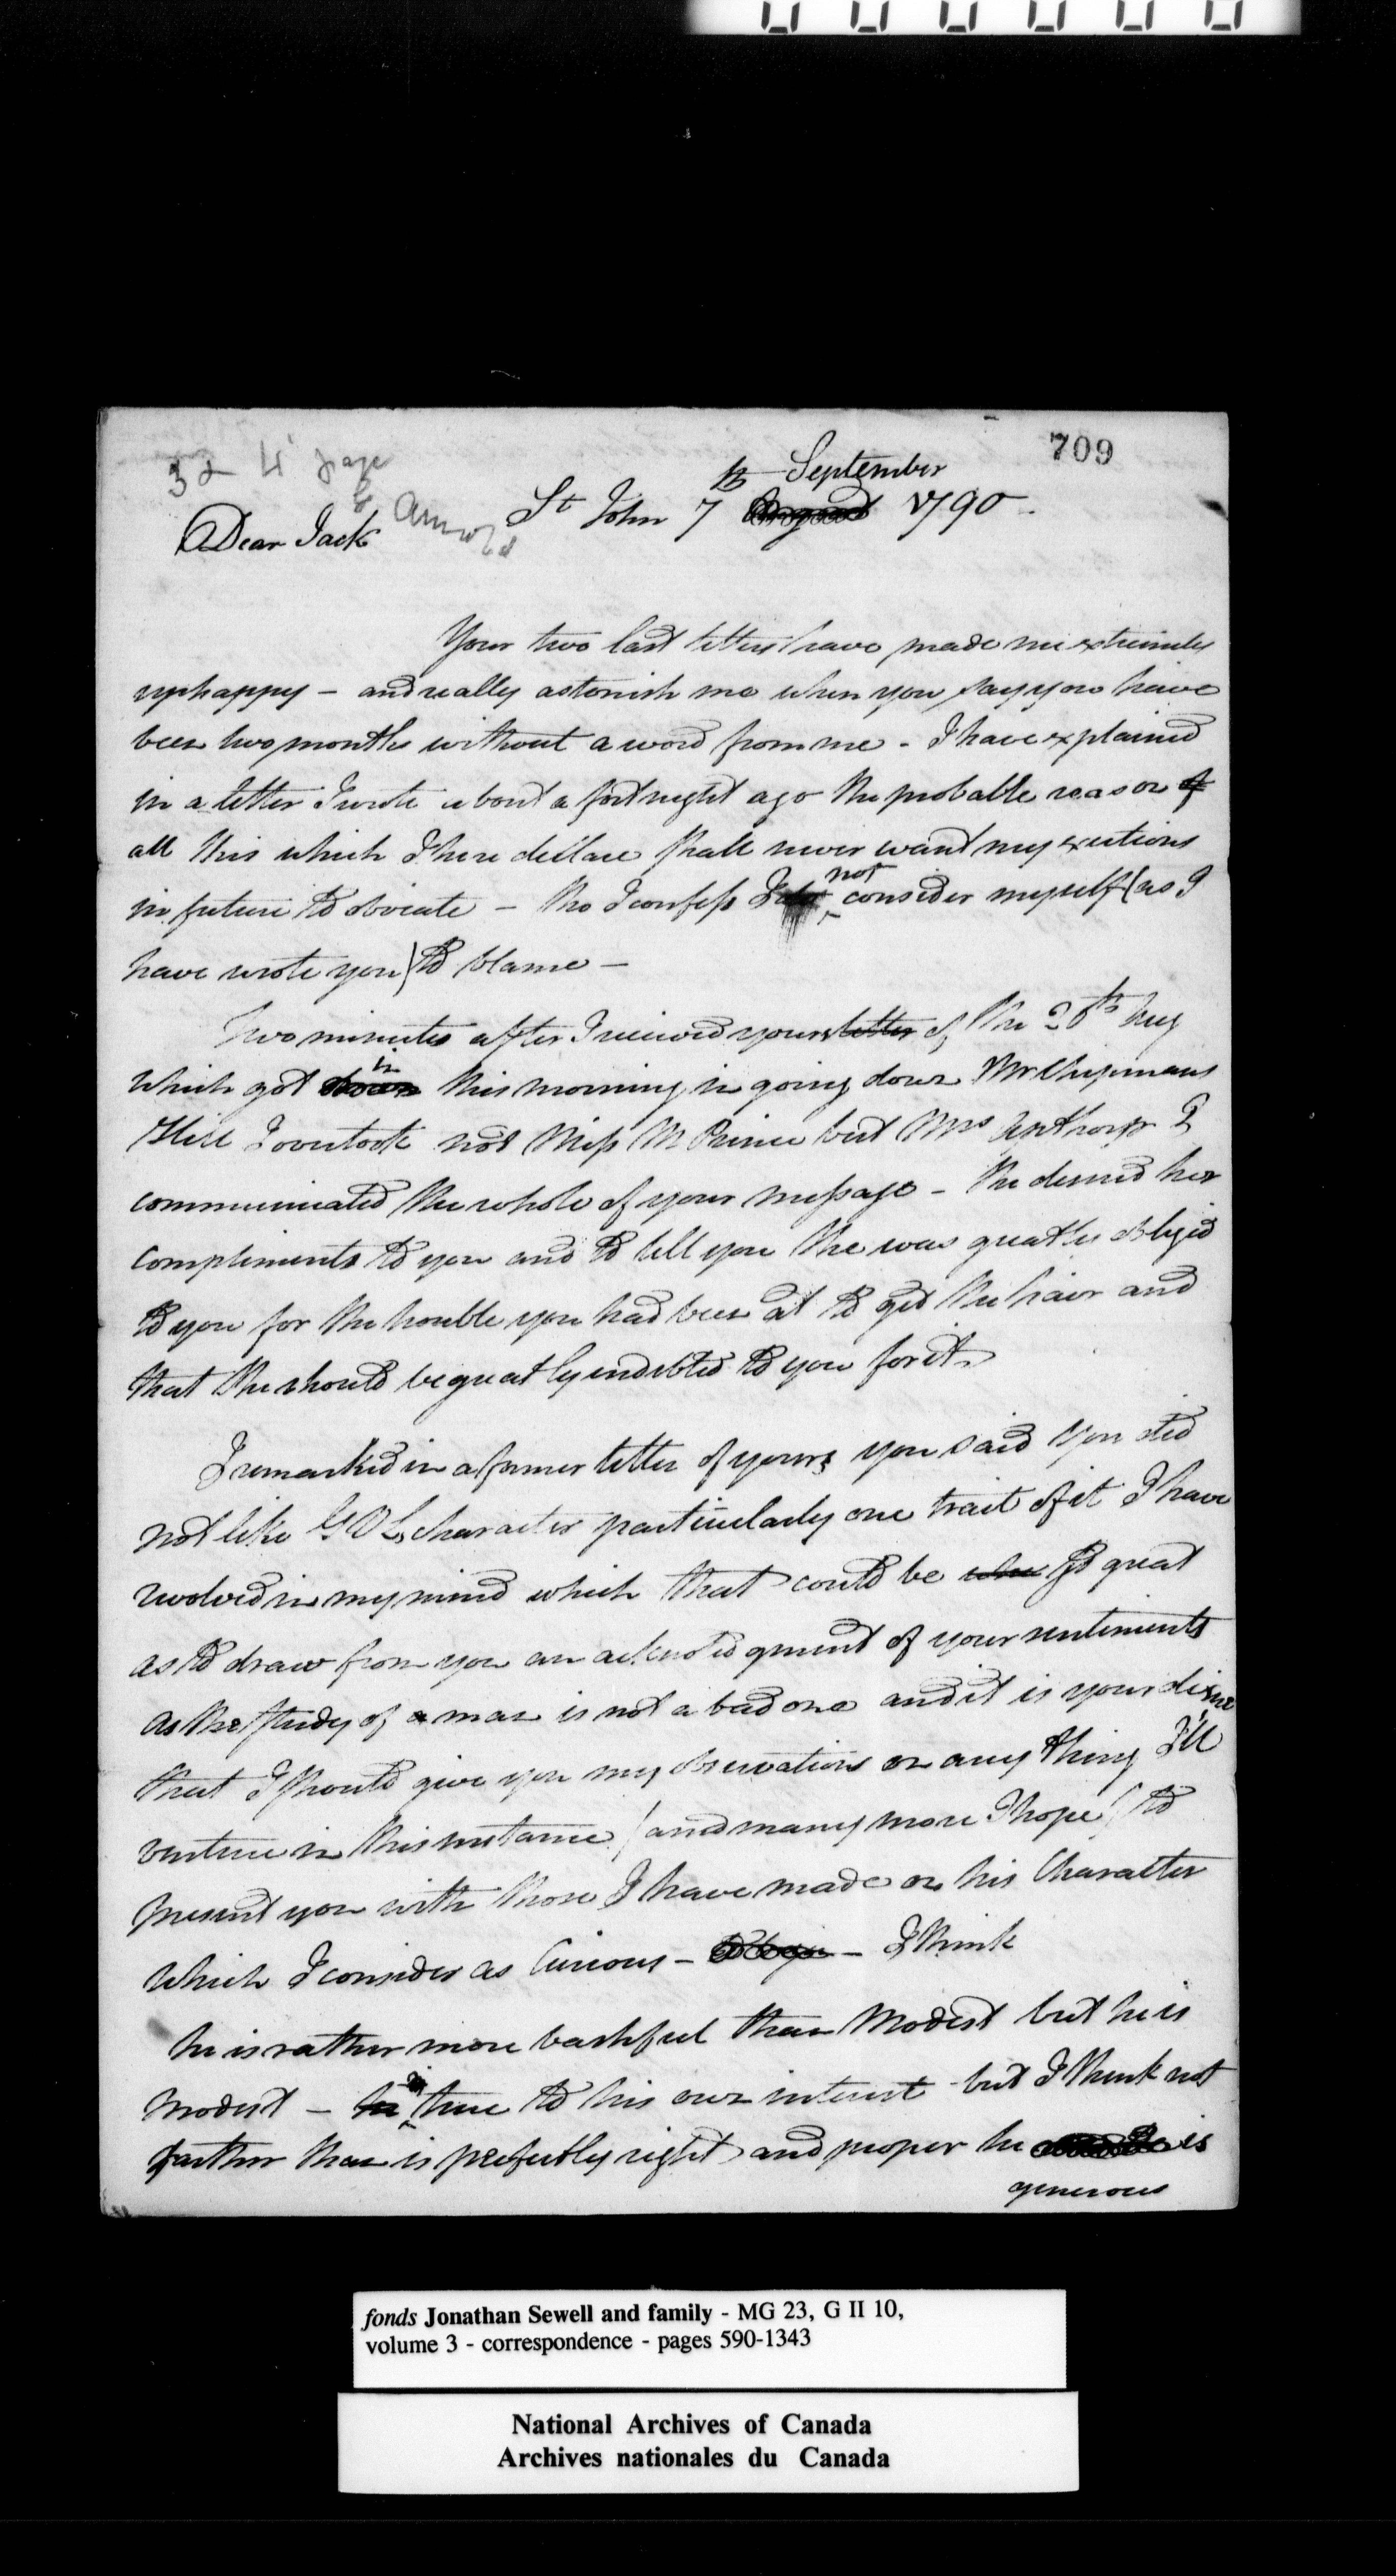 709
3 & 4 page
& Arnold
St John 7th September 1790 -
Dear Jack
Your two last letters have made me extremely
unhappy - and really astonish me when you say you have
been two months without a word from me - I have explained
in a letter I wrote about a fortnight ago the probable reason of
all this which I here declare shall never want my exertions
in future to obviate - tho I confess I do not consider myself (as I
have wrote you) to blame -
Two minutes after I received yours letter of the 20th Aug
which got in this morning in going down Mr Chipmans
Hill I overtook not Miss M Prince but Mrs Apthorp I
communicated the whole of your message - she desired her
compliments to you and to tell you she was greatly obliged
to you for the trouble you had been at to get the hair and
that she should be greatly indebted to you for it -
I remarked in a former letter of yours you said you did
not like G D Ls character particularly one trait of it I have
revolved in my mind which that could be so great
as to draw from you an acknowledgment of your sentiments
as the study of a man is not a bad one and it is your desire
that I should give you my observations on any thing I'll
venture in this instance (and many more I hope) to
present you with those I have made on his Character
which I consider as Curious - I think
he is rather more bashful than Modest but he is
modest - is true to his own interest but I think not
farther than is perfectly right and proper he is
generous
fonds Jonathan Sewell and family - MG 23, G II 10,
volume 3 - correspondence - pages 590-1343
National Archives of Canada
Archives nationales du Canada